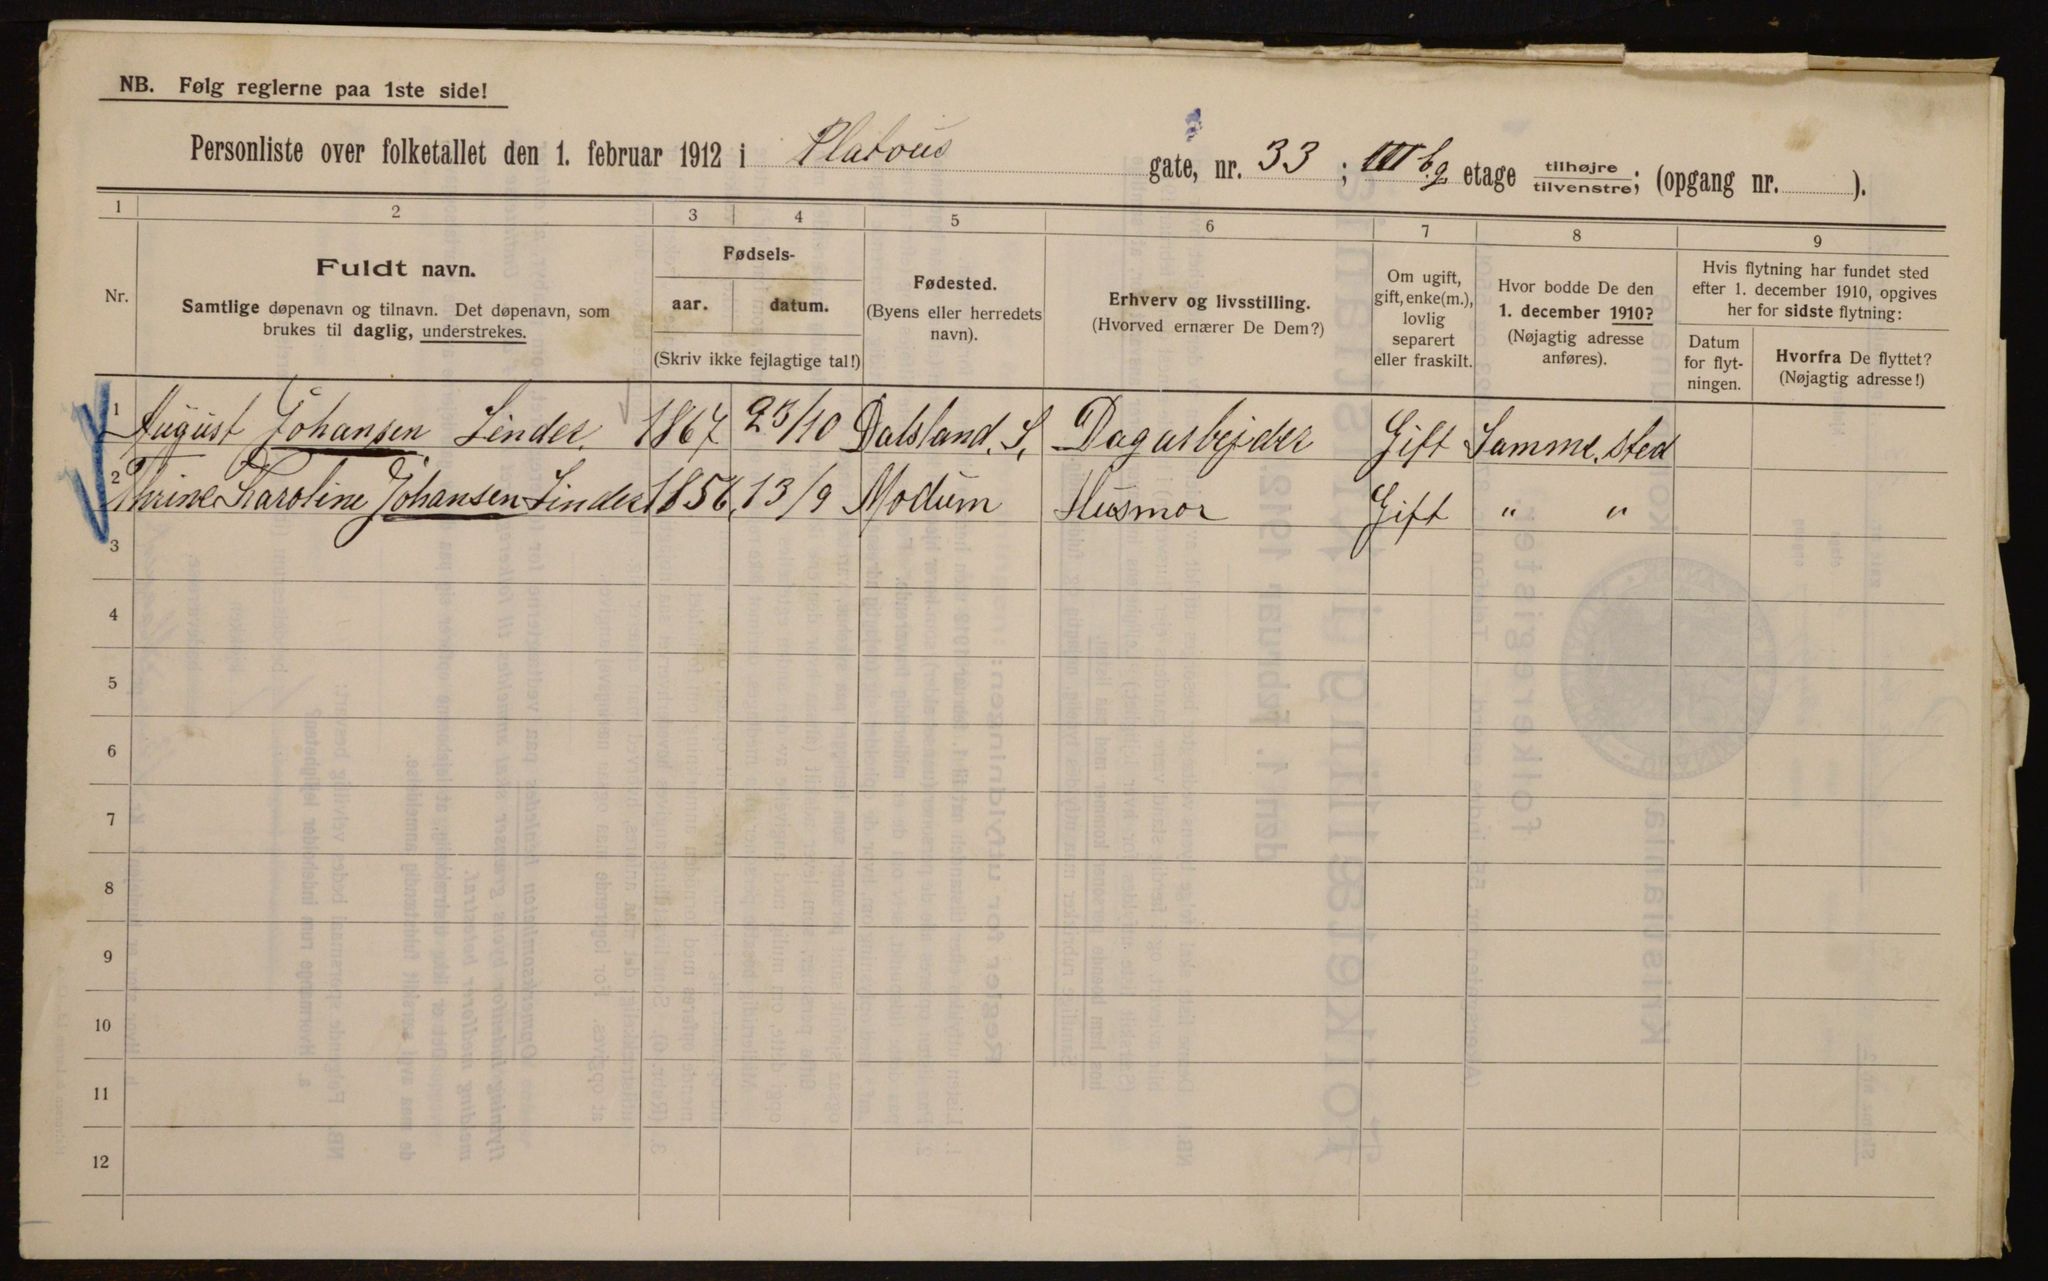 NB. Følg reglerne paa 1ste side!
Personliste over folketallet den 1. februar 1912 i Platous gate, nr. 33 ; III b.g etage tilhøjre tilvenstre; (opgang nr. ).
1 2 3 4 5 6 7 8 9
Nr.
Fuldt navn.
Samtlige døpenavn og tilnavn. Det døpenavn, som
brukes til daglig, understrekes.
Fødsels-
aar. datum.
(Skriv ikke fejlagtige tal!)
Fødested.
(Byens eller herredets
navn).
Erhverv og livsstilling.
(Hvorved ernærer De Dem?)
Om ugift,
gift, enke(m.),
lovlig
separert
eller fraskilt.
Hvor bodde De den
1. december 1910?
(Nøjagtig adresse
anføres).
Hvis flytning har fundet sted
efter 1. december 1910, opgives
her for sidste flytning:
Datum
for flyt-
ningen.
Hvorfra De flyttet?
(Nøjagtig adresse!)
1 August Johansen Linder. 1867 23/10 Dalsland. S. Dagarbejder Gift Samme. sted
2 Thrine Karoline Johansen Linder 1856, 13/9 Modum Husmor Gift " "
3
4
5
6
7
8
9
10
11
12